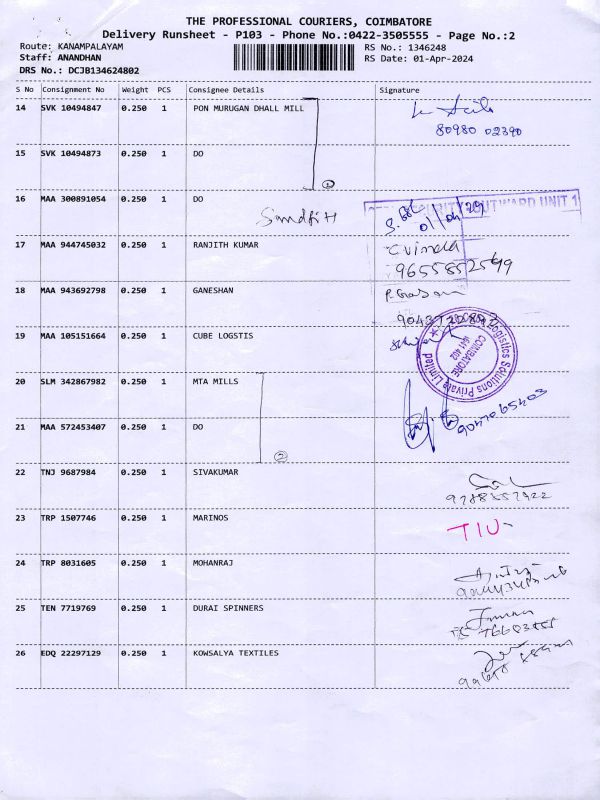 THE PROFESSIONAL COURIERS, COIMBATORE
Delivery Runsheet - P103 - Phone No.:0422-3505555 - Page No.:2
Route: KANAMPALAYAM RS No.: 1346248
Staff: ANANDHAN RS Date: 01-Apr-2024
DRS No.: DCJB134624802
S No Consignment No Weight PCS Consignee Details Signature
14 SVK 10494847 0.250 1 PON MURUGAN DHALL MILL
80980 02390
15 SVK 10494873 0.250 1 DO
1
16 MAA 300891054 0.250 1 DO
OUTWARD UNIT 1
17 MAA 944745032 0.250 1 RANJITH KUMAR
9655852549
18 MAA 943692798 0.250 1 GANESHAN
19 MAA 105151664 0.250 1 CUBE LOGSTIS
Logistics Solutions Private Limited
COIMBATORE
641 402
20 SLM 342867982 0.250 1 MTA MILLS
21 MAA 572453407 0.250 1 DO
2
22 TNJ 9687984 0.250 1 SIVAKUMAR
23 TRP 1507746 0.250 1 MARINOS
24 TRP 8031605 0.250 1 MOHANRAJ
25 TEN 7719769 0.250 1 DURAI SPINNERS
26 EDQ 22297129 0.250 1 KOWSALYA TEXTILES